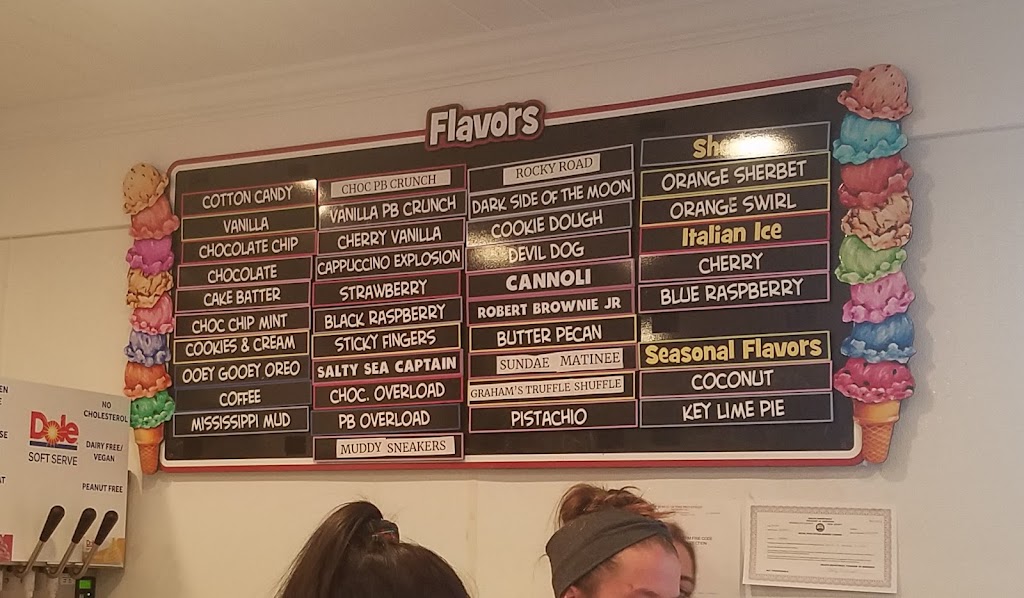 Flavors
COTTON CANDY
VANILLA
CHOCOLATE CHIP
CHOCOLATE
CAKE BATTER
CHOC CHIP MINT
COOKIES & CREAM
OOEY GOOEY OREO
COFFEE
MISSISSIPPI MUD
CHOC PB CRUNCH
VANILLA PB CRUNCH
CHERRY VANILLA
CAPPUCCINO EXPLOSION
STRAWBERRY
BLACK RASPBERRY
STICKY FINGERS
SALTY SEA CAPTAIN
CHOC. OVERLOAD
PB OVERLOAD
MUDDY SNEAKERS
ROCKY ROAD
DARK SIDE OF THE MOON
COOKIE DOUGH
DEVIL DOG
CANNOLI
ROBERT BROWNIE JR
BUTTER PECAN
SUNDAE MATINEE
GRAHAM'S TRUFFLE SHUFFLE
PISTACHIO
ORANGE SHERBET
ORANGE SWIRL
Italian Ice
CHERRY
BLUE RASPBERRY
Seasonal Flavors
COCONUT
KEY LIME PIE
Dole
SOFT SERVE
NO
CHOLESTEROL
DAIRY FREE/
VEGAN
PEANUT FREE